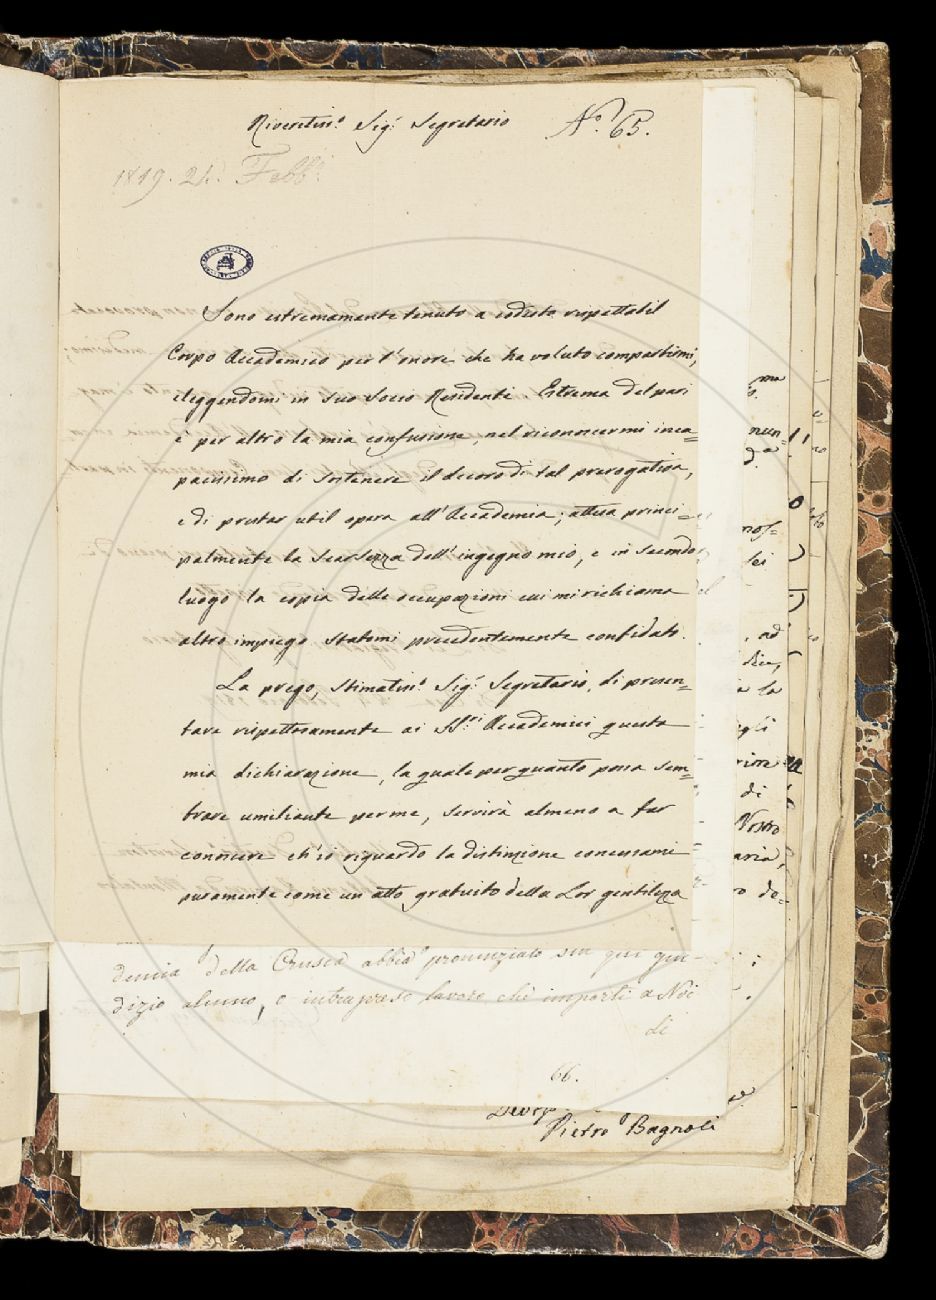 Riveritis.º Sig.ʳ Segretario Nº. 65.
1819. 24. Febb.º
Sono estremamente tenuto a codesto rispettabil
Corpo Accademico per l'onore che ha voluto compartirmi,
eleggendomi in suo Socio Residente. Estrema del pari
è per altro la mia confusione, nel riconoscermi inca=
pacissimo di sostenere il decoro di tal prerogativa,
e di prestar util opera all'Accademia; attesa princi=
palmente la scarsezza dell'ingegno mio, e in secondo
luogo la copia delle occupazioni cui mi richiama
altro impiego statomi precedentemente confidato.
La prego, Stimatis.º Sig.ʳ Segretario, di presen=
tare rispettosamente ai SS.ʳⁱ Accademici questa
mia dichiarazione, la quale per quanto possa sem=
brare umiliante per me, servirà almeno a far
conoscere ch'io riguardo la distinzione concessami
puramente come un atto gratuito della Lor gentilezza
demia della Crusca abbia pronunziato sin qui giu-
dizio alcuno, o intrapreso lavoro che importi a Noi
di
66.
Pietro Bagnoli